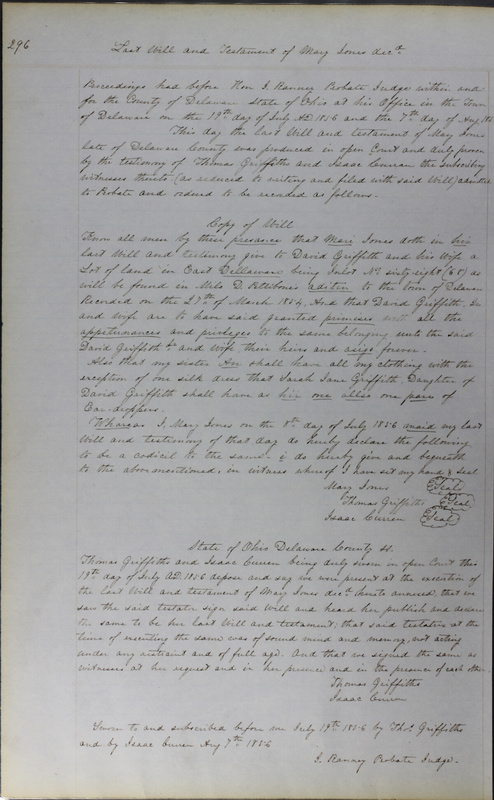 296
Last Will and Testament of Mary Jones decd
Proceedings had before Hon J. Ranney Probate Judge within and
for the County of Delaware State of Ohio at his Office in the Town
of Delaware on the 19th day of July A.D. 1856 and the 7th day of Aug 1856
This day the last Will and testament of Mary Jones
late of Delaware County was produced in open Court and duly proven
by the testimony of Thomas Griffiths and Isaac Curren the subscribing
witnesses thereto (as reduced to writing and filed with said Will) admitted
to Probate and ordered to be recorded as follows.
Copy of Will
Know all men by their presance that Mari Jones doth in his
last Will and testimony give to David Griffith and his Wife a
Lot of land in East Dellaware being Inlot No sixty-eight (68) as
will be found in Milo D. Pettibone's adition to the town of Delaware
Recorded on the 27th of March 1854, And that David Griffith,
and wife are to have said granted primises with all the
appertinances and privleges to the same belonging unto the said
David Griffith & wife their heirs and asign forever.
Also that my sister Ann shall have all my clothing with the
exception of one silk dress that Sarah Jane Griffith Daughter of
David Griffith shall have as hir one allso one pare of
Ear-droppers.
Whareas I, Mary Jones on the 8th day of July 1856 maid my last
Will and testimony of that day do hereby declare the following
to be a codicil to the same. & do hereby give and bequeath
to the above mentioned, in witness whereof I have set my hand & seal
Mary Jones (Seal)
Thomas Griffiths (Seal)
Isaac Curren (Seal)
State of Ohio Delaware County ss.
Thomas Griffiths and Isaac Curren being duly sworn in open Court this
19th day of July A.D. 1856 depose and say we were present at the execution of
the last Will and testament of Mary Jones decd hereto annexed, that we
saw the said testator sign said Will and heard her publish and declare
the same to be her last Will and testament; that said testatrix at the
time of executing the same was of sound mind and memory, not acting
under any restraint and of full age. And that we signed the same as
witnesses at her request and in her presence and in the presence of each other.
Thomas Griffiths
Isaac Curren
Sworn to and subscribed before me July 19th 1856 by Thos Griffiths
and by Isaac Curren Aug 7th 1856
J. Ranney Probate Judge.